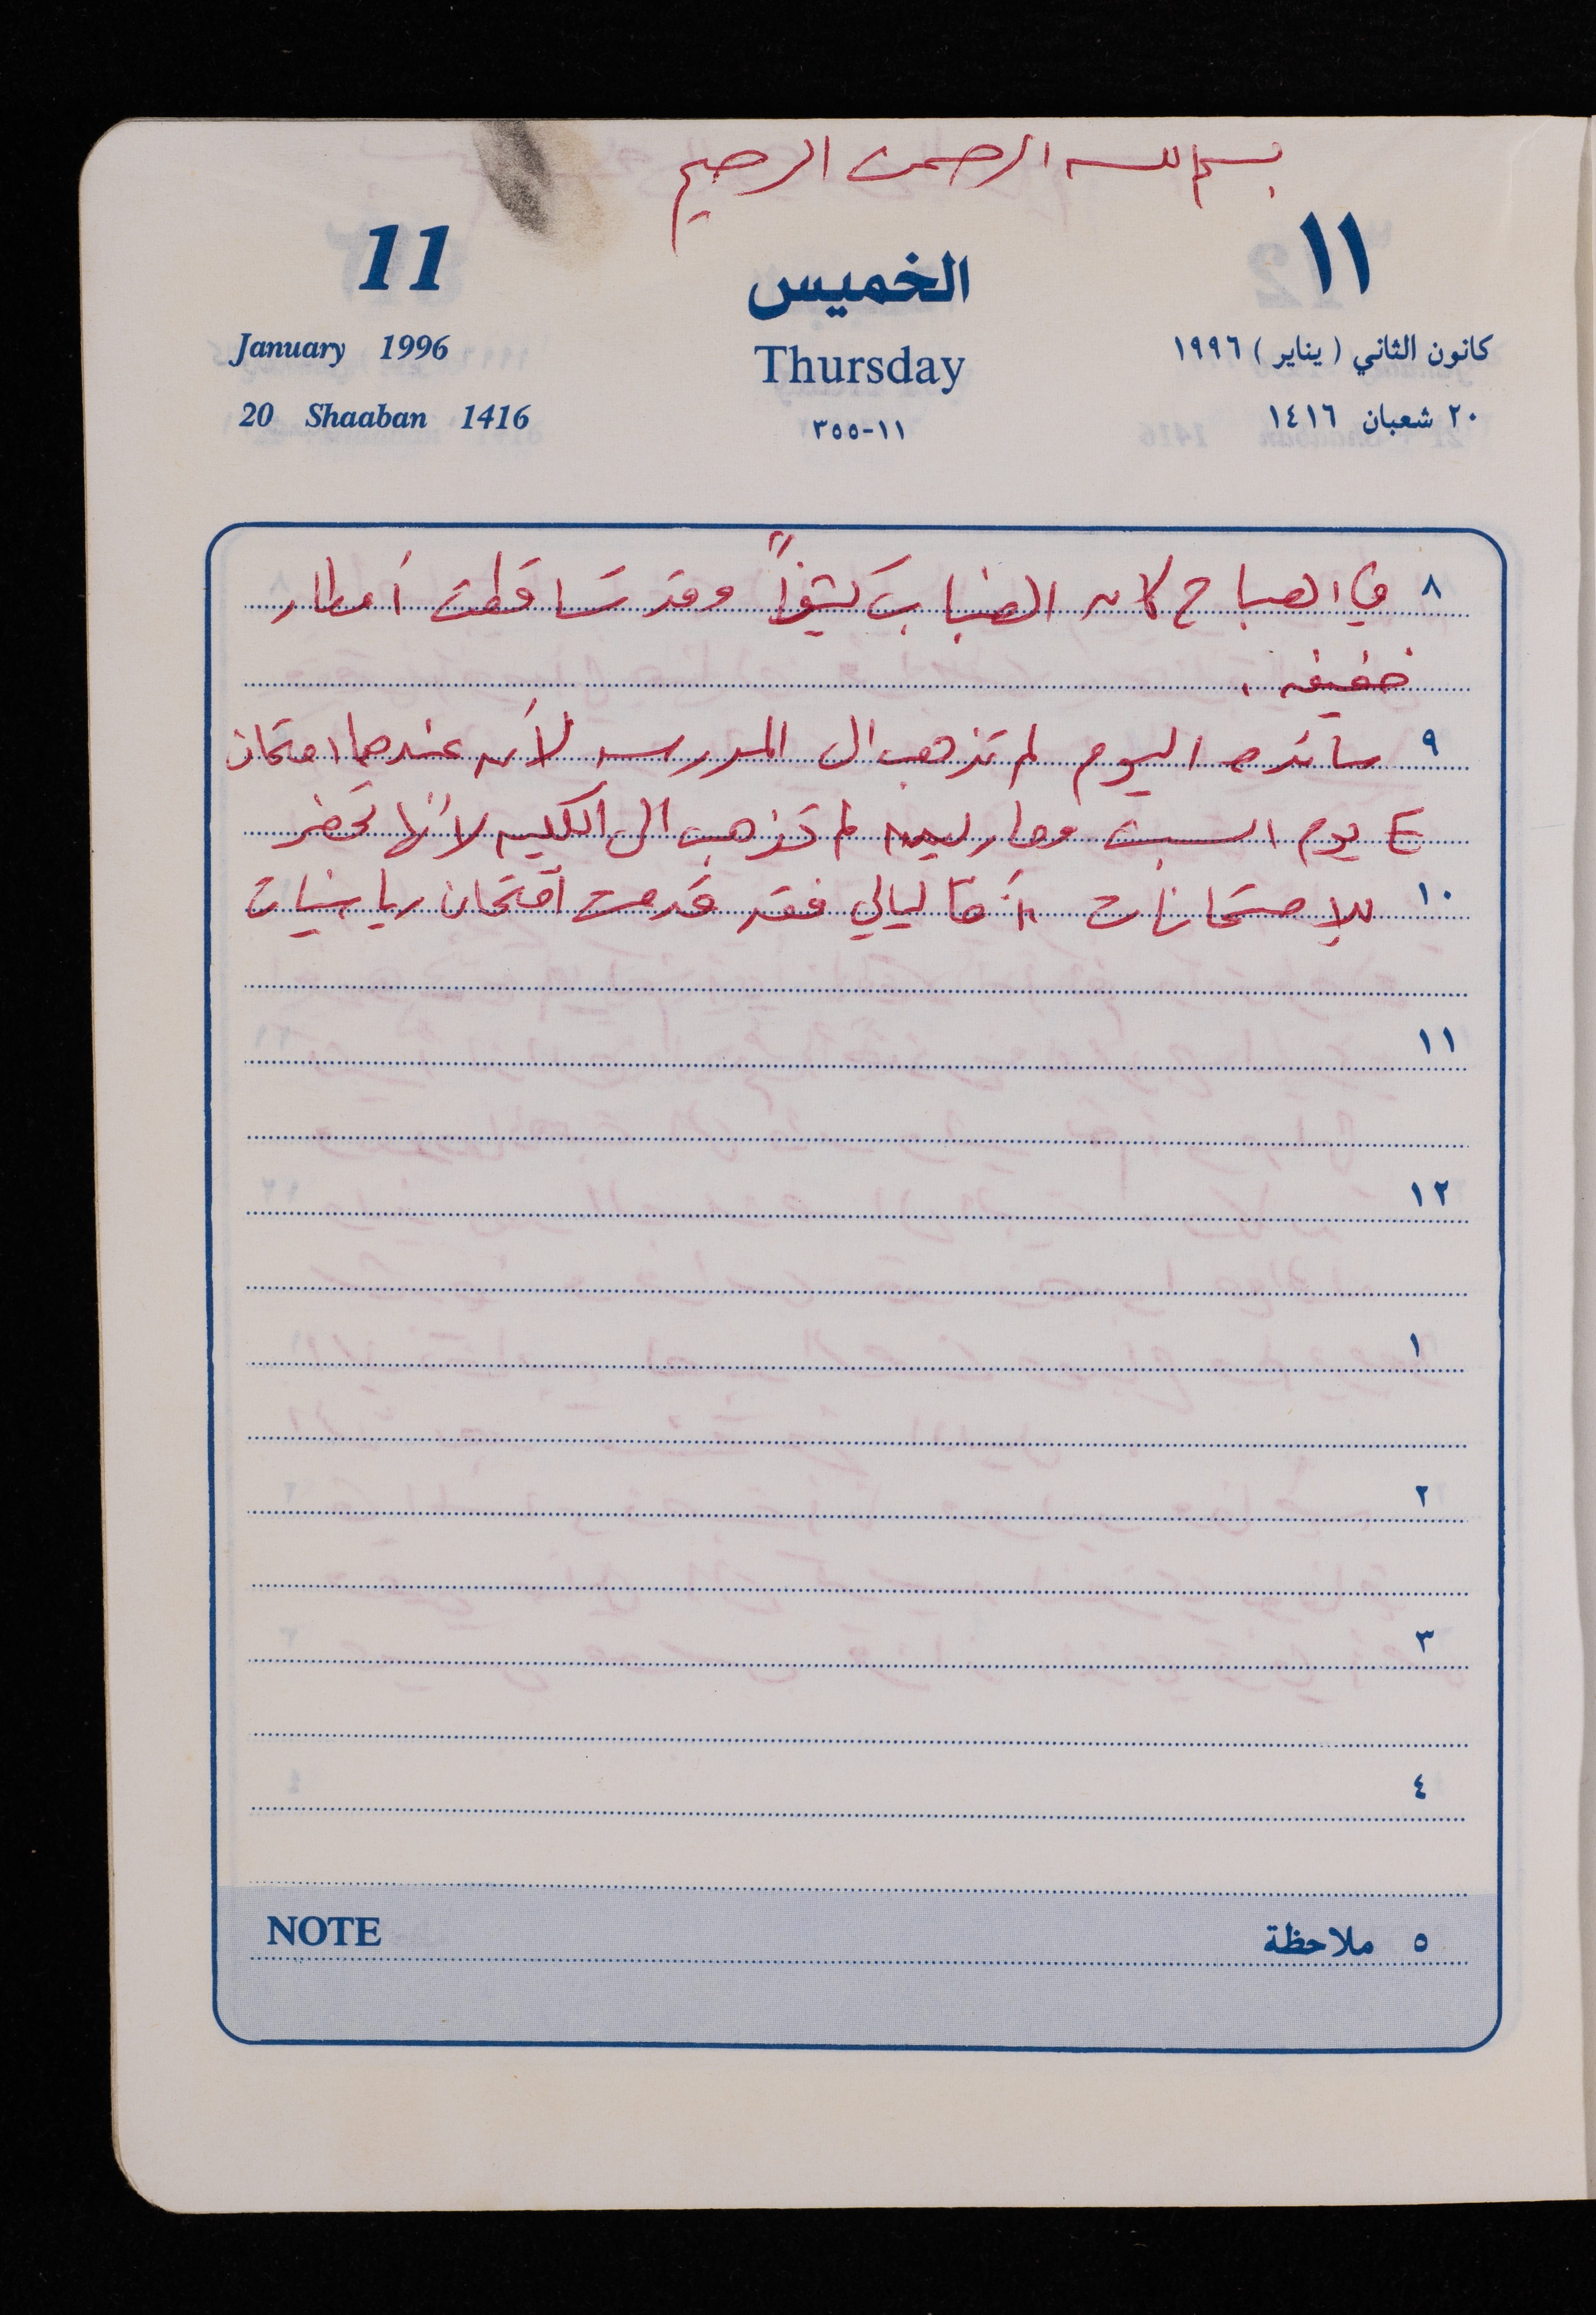 بسم الله الرحمن الرحيم
11
الخميس
١١
January 1996
Thursday
كانون الثاني ( يناير ) ١٩٩٦
20 Shaaban 1416
١١-٣٥٥
٢٠ شعبان ١٤١٦
٨ في الصباح كان الضباب كثيفاً وقد تساقطت أمطار
خفيفه .
٩ ساندره اليوم لم تذهب الى المدرسه لأن عندها امتحان
يوم السبت ومارلين لم تذهب الى الكليه لانها تحضر
١٠ للامتحانات أما ليالي فقد قدمت امتحان رياضيات
١١
١٢
١
٢
٣
٤
NOTE
٥ ملاحظة